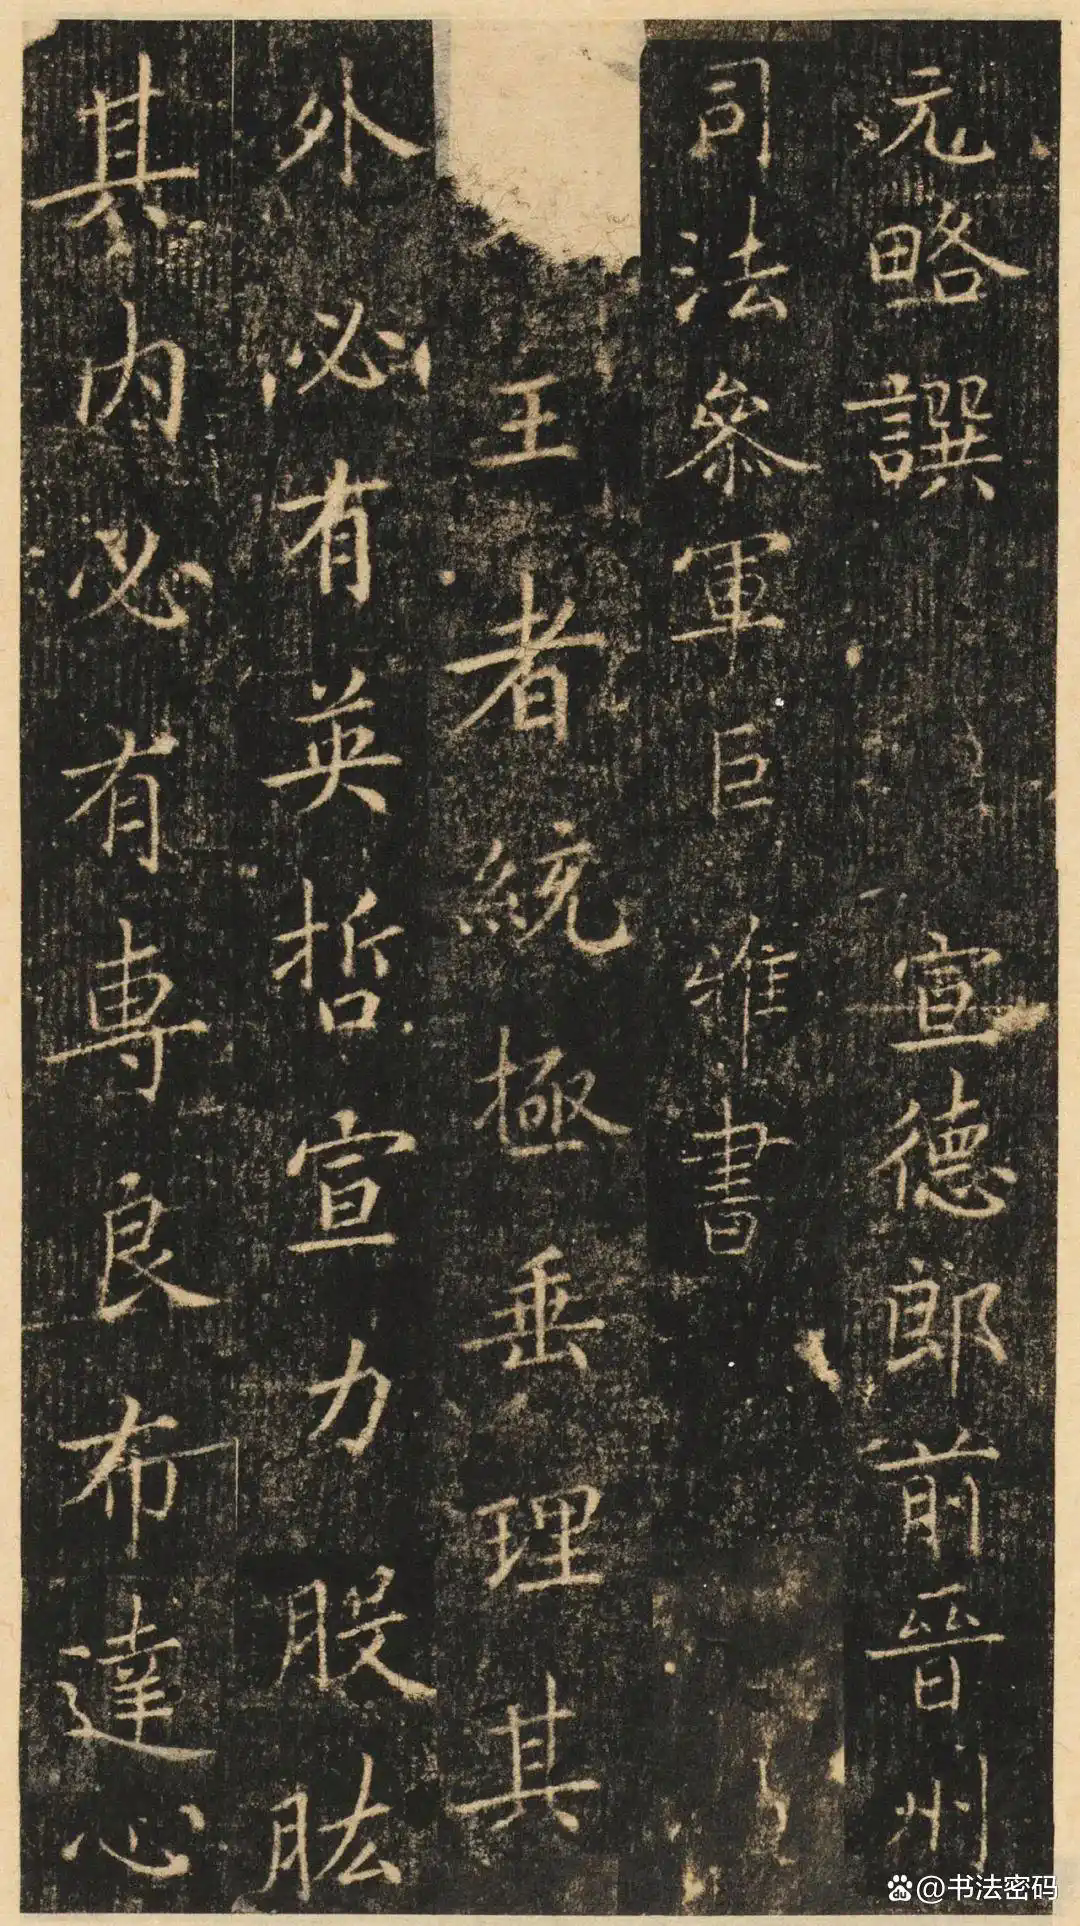 元略譔 宣德郎前晉州
司法參軍巨雅書
王者統極垂理其
外必有英哲宣力股肱
其内必有專良布達心
@书法密码